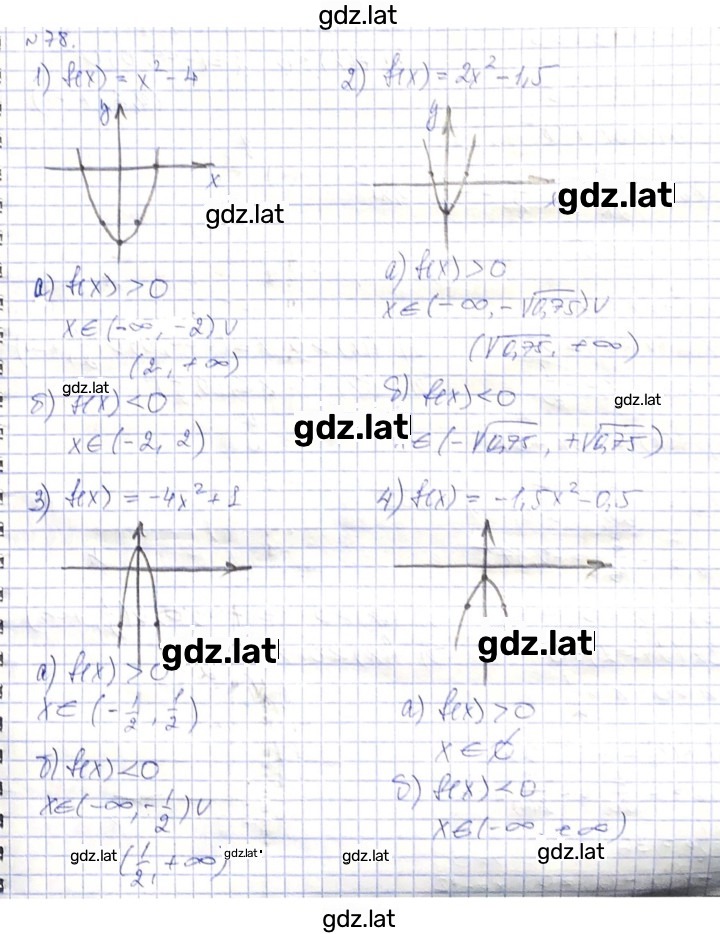 gdz.lat
№78.
1) f(x) = x² - 4
y
x
gdz.lat
а) f(x) > 0
x ∈ (-∞, -2) ∪
(2, +∞)
gdz.lat
б) f(x) < 0
x ∈ (-2, 2)
2) f(x) = 2x² - 1,5
y
gdz.lat
а) f(x) > 0
x ∈ (-∞, -√0,75) ∪
(√0,75, +∞)
б) f(x) < 0
gdz.lat
gdz.lat
∈ (-√0,75, +√0,75)
3) f(x) = -4x² + 1
gdz.lat
а) f(x) > 0
x ∈ (-1/2, 1/2)
б) f(x) < 0
x ∈ (-∞, -1/2) ∪
gdz.lat
(1/2, +∞)
gdz.lat
4) f(x) = -1,5x² - 0,5
gdz.lat
а) f(x) > 0
x ∈ ∅
б) f(x) < 0
x ∈ (-∞, +∞)
gdz.lat
gdz.lat
gdz.lat